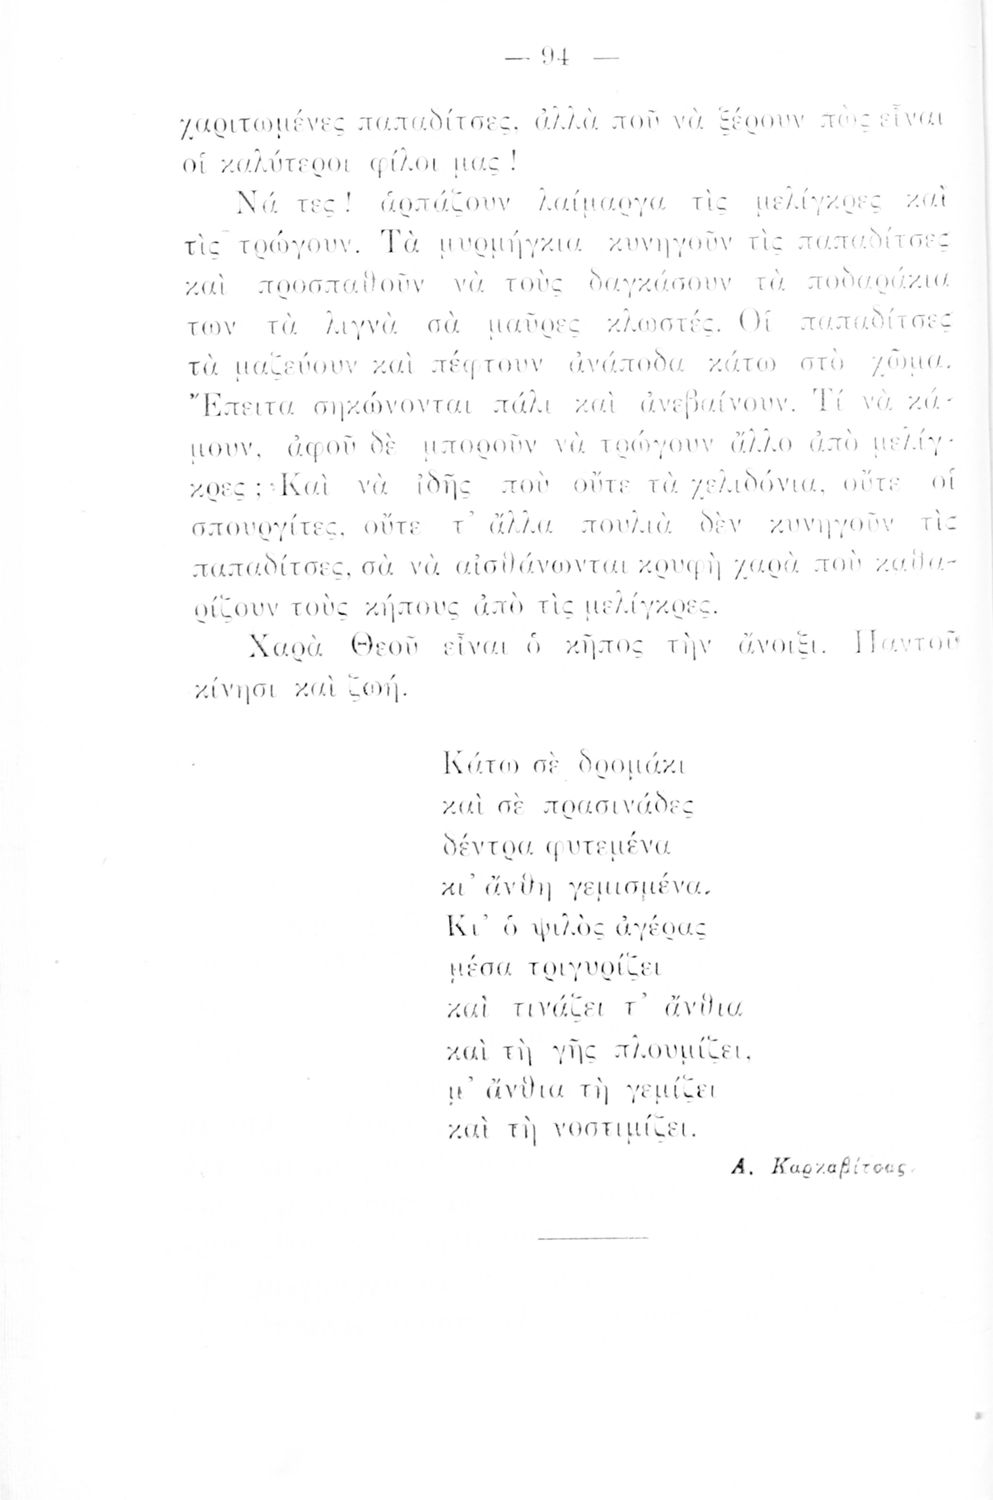 — 94 —
χαριτωμένες παπαδίτσες, ἀλλὰ ποῦ νὰ ξέρουν πὼς εἶναι
οἱ καλύτεροι φίλοι μας !
Νά τες ! ἁρπάζουν λαίμαργα τὶς μελίγκρες καὶ
τὶς τρώγουν. Τὰ μυρμήγκια κυνηγοῦν τὶς παπαδίτσες
καὶ προσπαθοῦν νὰ τοὺς δαγκάσουν τὰ ποδαράκια
των τὰ λιγνὰ σὰ μαῦρες κλωστές. Οἱ παπαδίτσες
τὰ μαζεύουν καὶ πέφτουν ἀνάποδα κάτω στὸ χῶμα.
Ἔπειτα σηκώνονται πάλι καὶ ἀνεβαίνουν. Τί νὰ κά-
μουν, ἀφοῦ δὲ μποροῦν νὰ τρώγουν ἄλλο ἀπὸ μελίγ-
κρες ; Καὶ νὰ ἰδῆς ποὺ οὔτε τὰ χελιδόνια, οὔτε οἱ
σπουργίτες, οὔτε τ᾿ ἄλλα πουλιὰ δὲν κυνηγοῦν τὶς
παπαδίτσες, σὰ νὰ αἰσθάνωνται κρυφὴ χαρὰ ποὺ καθα-
ρίζουν τοὺς κήπους ἀπὸ τὶς μελίγκρες.
Χαρὰ Θεοῦ εἶναι ὁ κῆπος τὴν ἄνοιξι. Παντοῦ
κίνησι καὶ ζωή.
Κάτω σὲ δρομάκι
καὶ σὲ πρασινάδες
δέντρα φυτεμένα
κι᾿ ἄνθη γεμισμένα.
Κι᾿ ὁ ψιλὸς ἀγέρας
μέσα τριγυρίζει
καὶ τινάζει τ᾿ ἄνθια
καὶ τὴ γῆς πλουμίζει,
μ᾿ ἄνθια τὴ γεμίζει
καὶ τὴ νοστιμίζει.
Α. Καρκαβίτσας